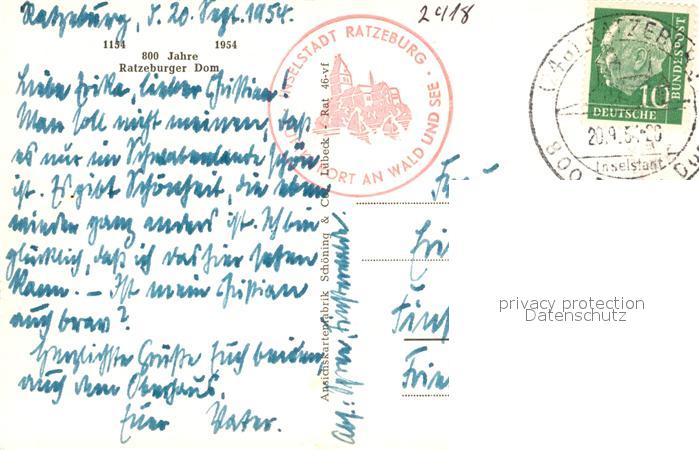 Ratzeburg, d. 20. Sept. 1954.
2418
1154 1954
800 Jahre
Ratzeburger Dom
Liebe Erika, lieber Christian!
Man soll nicht meinen, daß
es nur im Schwabenlande schön
ist. Es gibt Schönheit, die eben
wieder ganz anders ist. Ich bin
glücklich, daß ich das hier sehen
kann. – Ist mein Christian
auch brav?
Herzlichste Grüße Euch beiden
auch dem Oberhaus.
Euer Vater.
INSELSTADT RATZEBURG
LUFTKURORT AN WALD UND SEE
Ansichtskartenfabrik Schöning & Co., Lübeck - Rat 46-vf
DEUTSCHE
BUNDESPOST
10
20.9.54
Inselstadt
800
privacy protection
Datenschutz